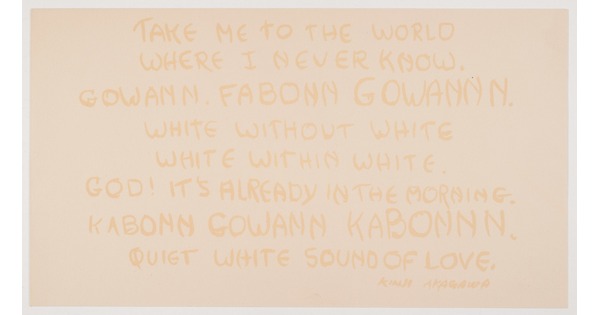 TAKE ME TO THE WORLD
WHERE I NEVER KNOW.
GOWANN. FABONN GOWANNN.
WHITE WITHOUT WHITE
WHITE WITHIN WHITE.
GOD! IT'S ALREADY IN THE MORNING.
KABONN GOWANN KABONNN.
QUIET WHITE SOUND OF LOVE.